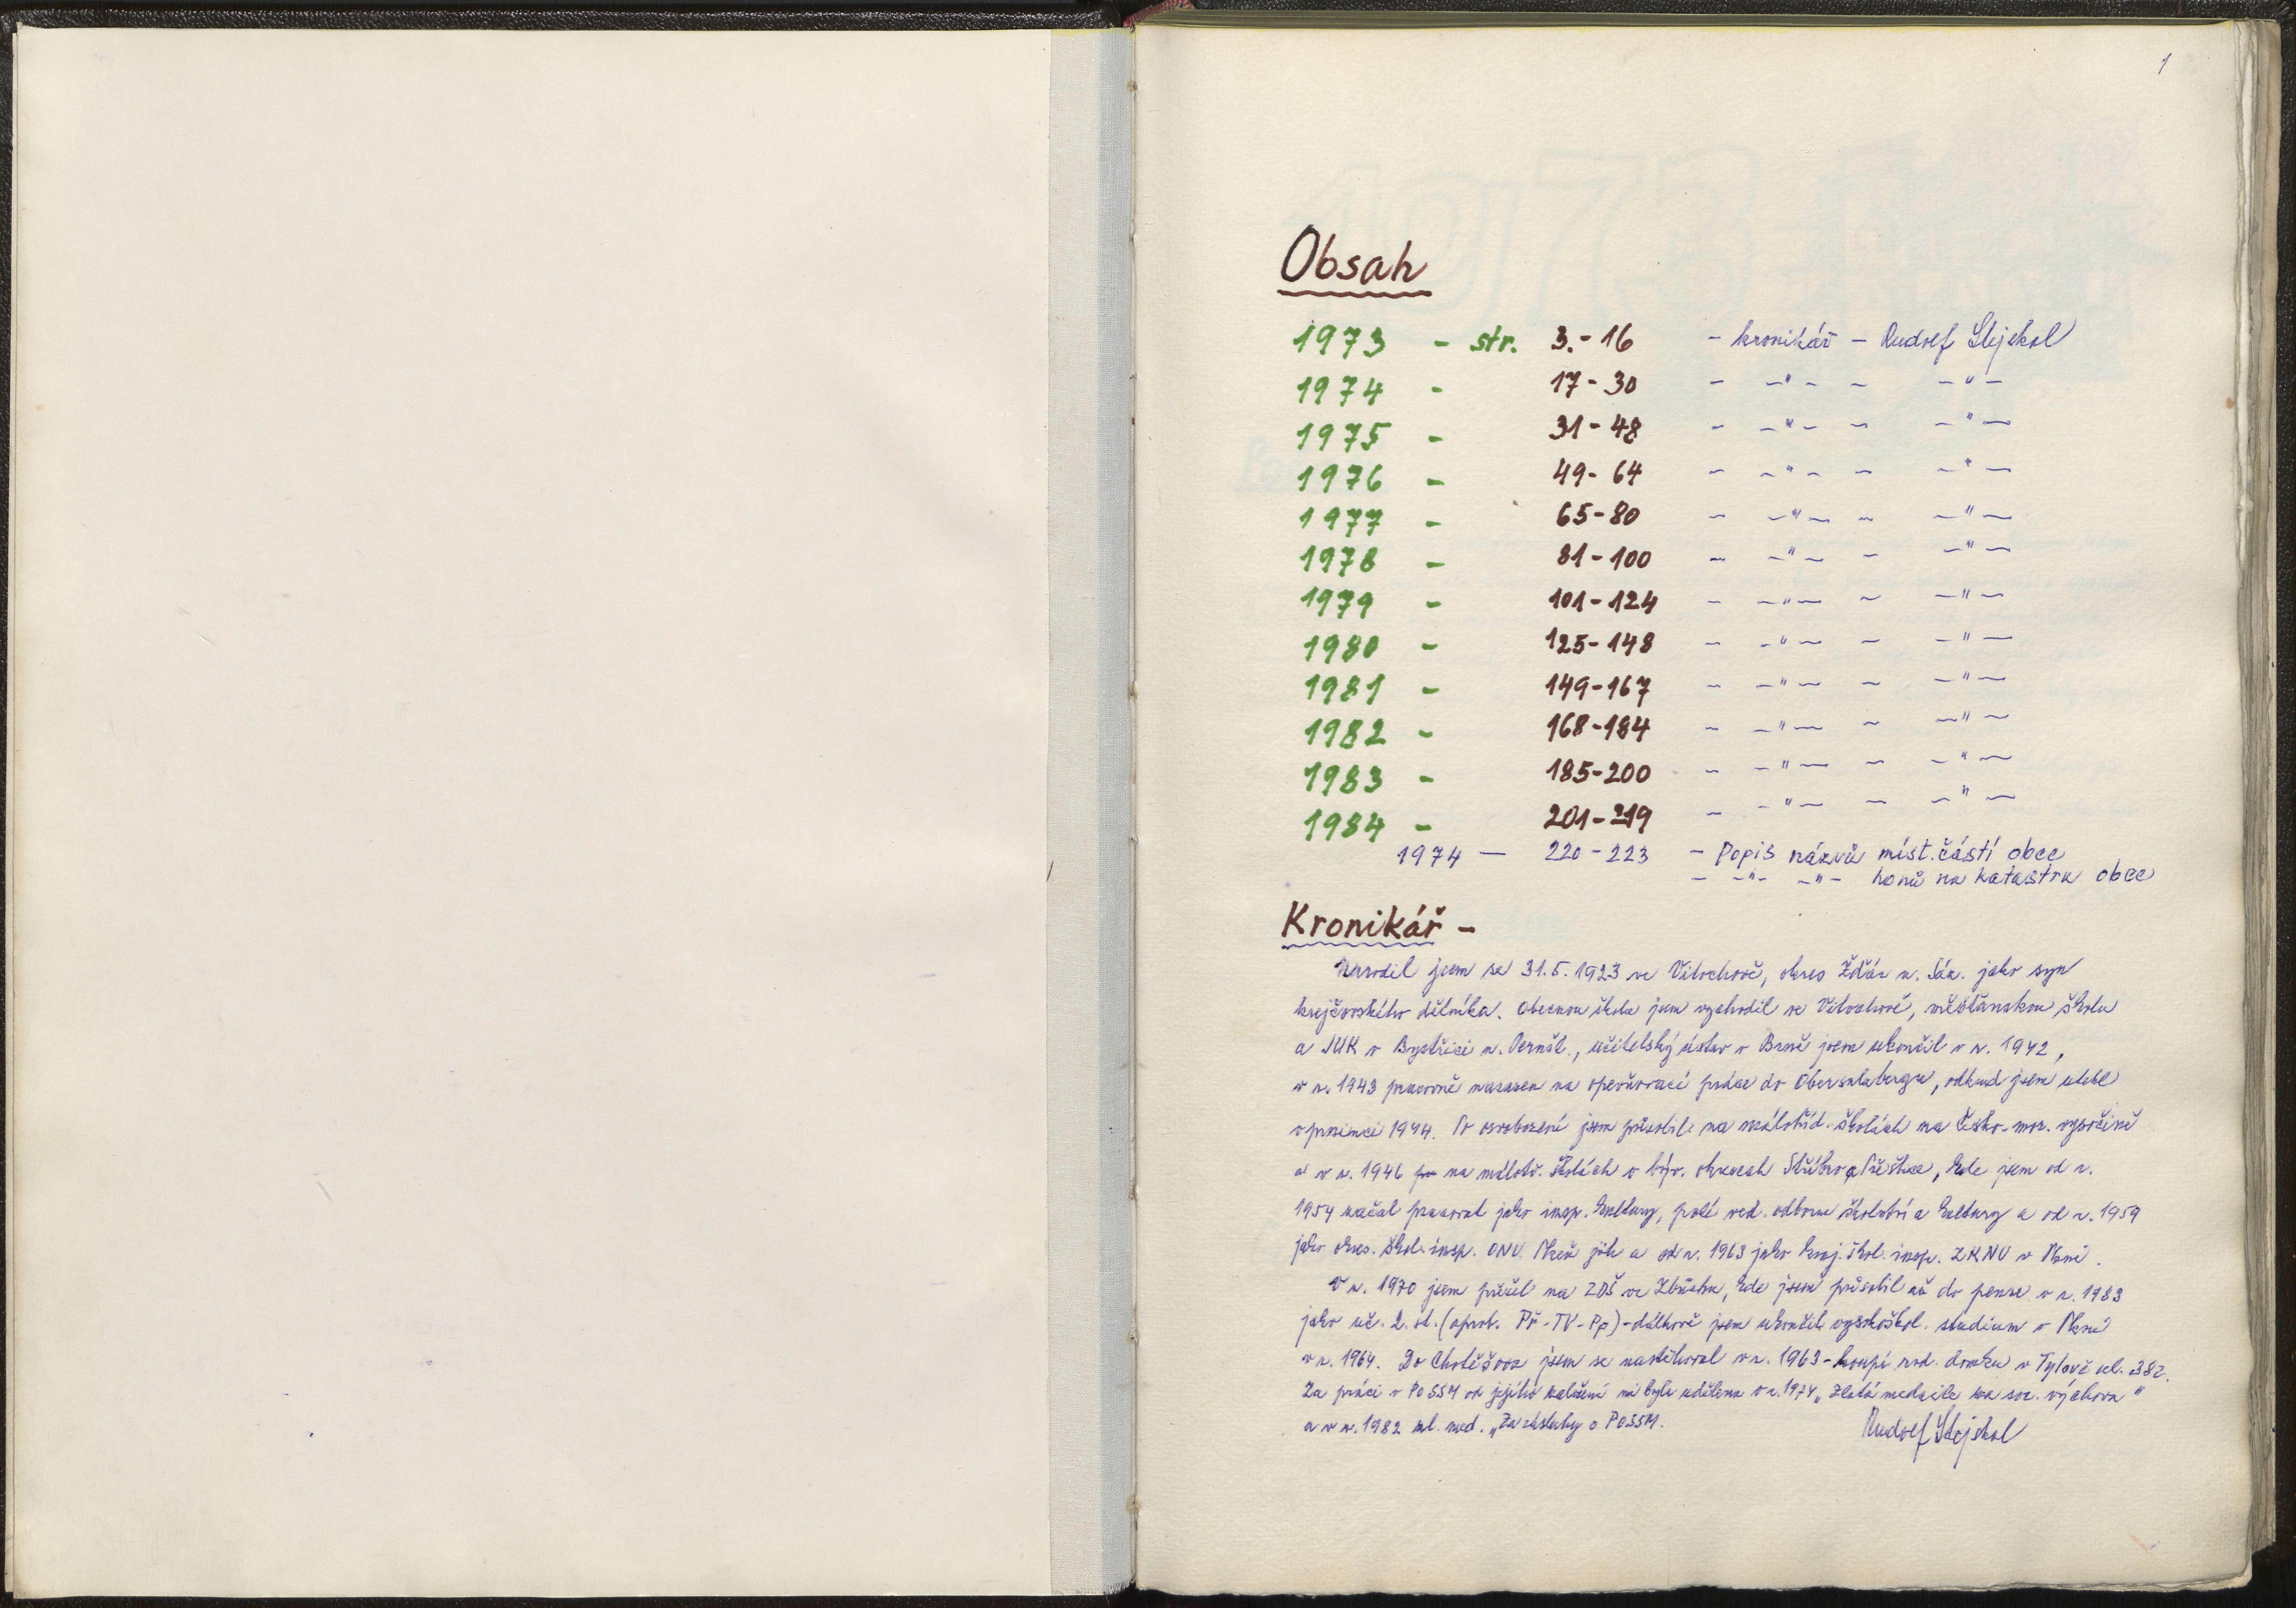 1
Obsah
1973 - str. 3.-16 - kronikář - Rudolf Stejskal
1974 - 17-30 - -"- - -"-
1975 - 31-48 - -"- - -"-
1976 - 49-64 - -"- - -"-
1977 - 65-80 - -"- - -"-
1978 - 81-100 - -"- - -"-
1979 - 101-124 - -"- - -"-
1980 - 125-148 - -"- - -"-
1981 - 149-167 - -"- - -"-
1982 - 168-184 - -"- - -"-
1983 - 185-200 - -"- - -"-
1984 - 201-219 - -"- - -"-
1974 — 220-223 - Popis názvů míst. částí obce
- -"- -"- honů na katastru obce
Kronikář -
Narodil jsem se 31.5.1923 ve Vítochově, okres Žďár n. Sáz. jako syn
krejčovského dělníka. Obecnou školu jsem vychodil ve Vítochově, měšťanskou školu
a JUK v Bystřici n. Pernšt., učitelský ústav v Brně jsem ukončil v r. 1942,
v r. 1943 pracovně nasazen na opevňovací práce do Obersalzbergu, odkud jsem utekl
v prosinci 1944. Po osvobození jsem působil na málotříd. školách na Česko-mor. vysočině
a v r. 1946 na málotř. školách v býv. okresech Stříbro a Přeštice, kde jsem od r.
1954 začal pracovat jako insp. kultury, poté ved. odboru školství a kultury a od r. 1959
jako okres. škol. insp. ONV Plzeň jih a od r. 1963 jako kraj. škol. insp. ZKNV v Plzni.
V r. 1970 jsem přešel na ZDŠ ve Zbůchu, kde jsem působil až do penze v r. 1983
jako uč. 2. st. (aprob. Př-TV-Pp)-dálkově jsem ukončil vysokoškol. studium v Plzni
v r. 1964. Do Chotěšova jsem se nastěhoval v r. 1963 - koupí rod. domku v Tylově ul. 382.
Za práci v PO SSM od jejího založení mi byla udělena v r. 1974 „Zlatá medaile za soc. výchovu"
a v r. 1982 zl. med. „Za zásluhy o PO SSM.
Rudolf Stejskal